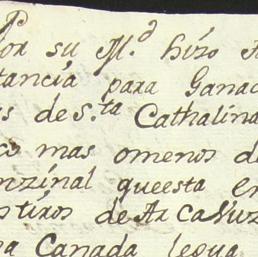 por su M.d hizo
tancia para Ganad
s de S.ta Cathalina
co mas omenos de
nzinal queesta en
stiros de Arcavuz
a Canada legua